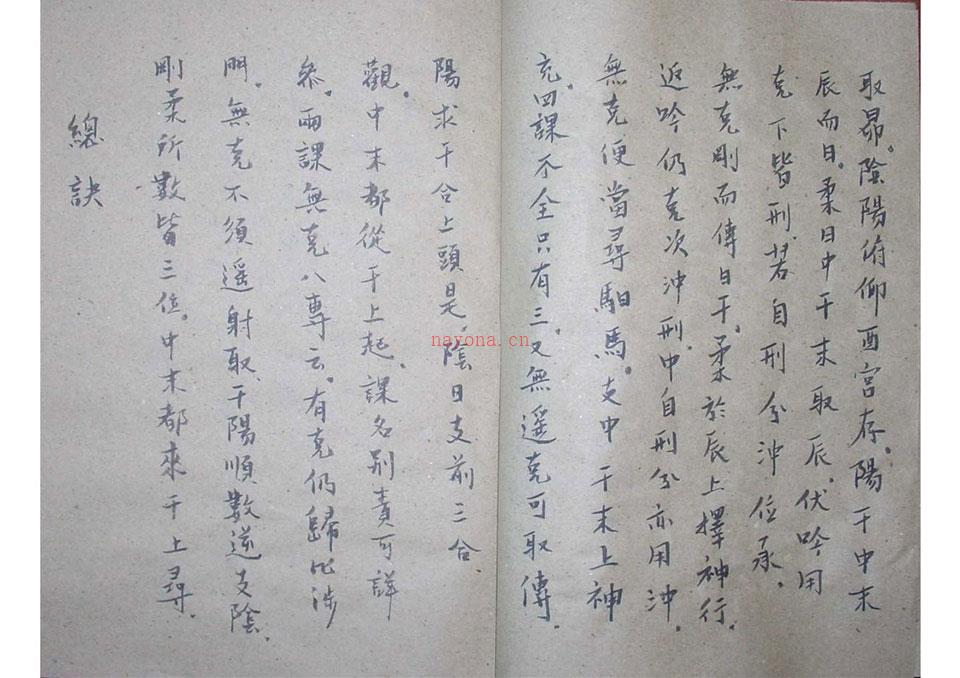 取昴。陰陽俯仰酉宮存。陽干中末
辰而日。柔日中干末取辰。伏吟用
克下皆刑。若自刑兮沖位承。
無克剛而傳日干。柔於辰上擇神行。
返吟仍克次沖刑。中自刑兮亦用沖。
無克便當尋馹馬。支中干末上神
充。四課不全只有三。又無遥克可取傳。
陽求干合上頭是。陰日支前三合
觀。中末都從干上起。課名別責可詳
叅。兩課無克八專云。有克仍歸比涉
門。無克不須遥射取。干陽順數逆支陰。
剛柔所數皆三位。中末都來干上尋。
總訣
nayona.cn